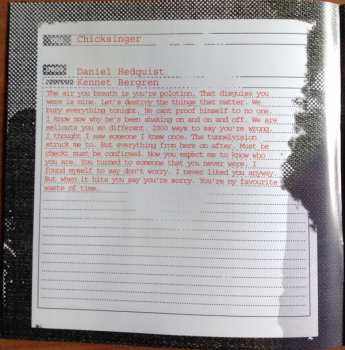 Chicksinger
Daniel Hedquist
Kennet Bergren
The air you breath is you're polotion. That disguise you
wore is mine. Let's destroy the things that matter. We
bury everything tonight. He cant proof himself to no one.
I know now why he's been shaking on and on and off. We are
sellouts you so different. 2000 ways to say you're wrong.
I thought I saw someone I knew once. The tunnelvision
struck me to. But everything from here on after. Must be
checks must be confirmed. Now you expect me to know who
you are. You turned to someone that you never were. I
found myself to say don't worry. I never liked you anyway.
But when it hits you say you're sorry. You're my favourite
waste of time..